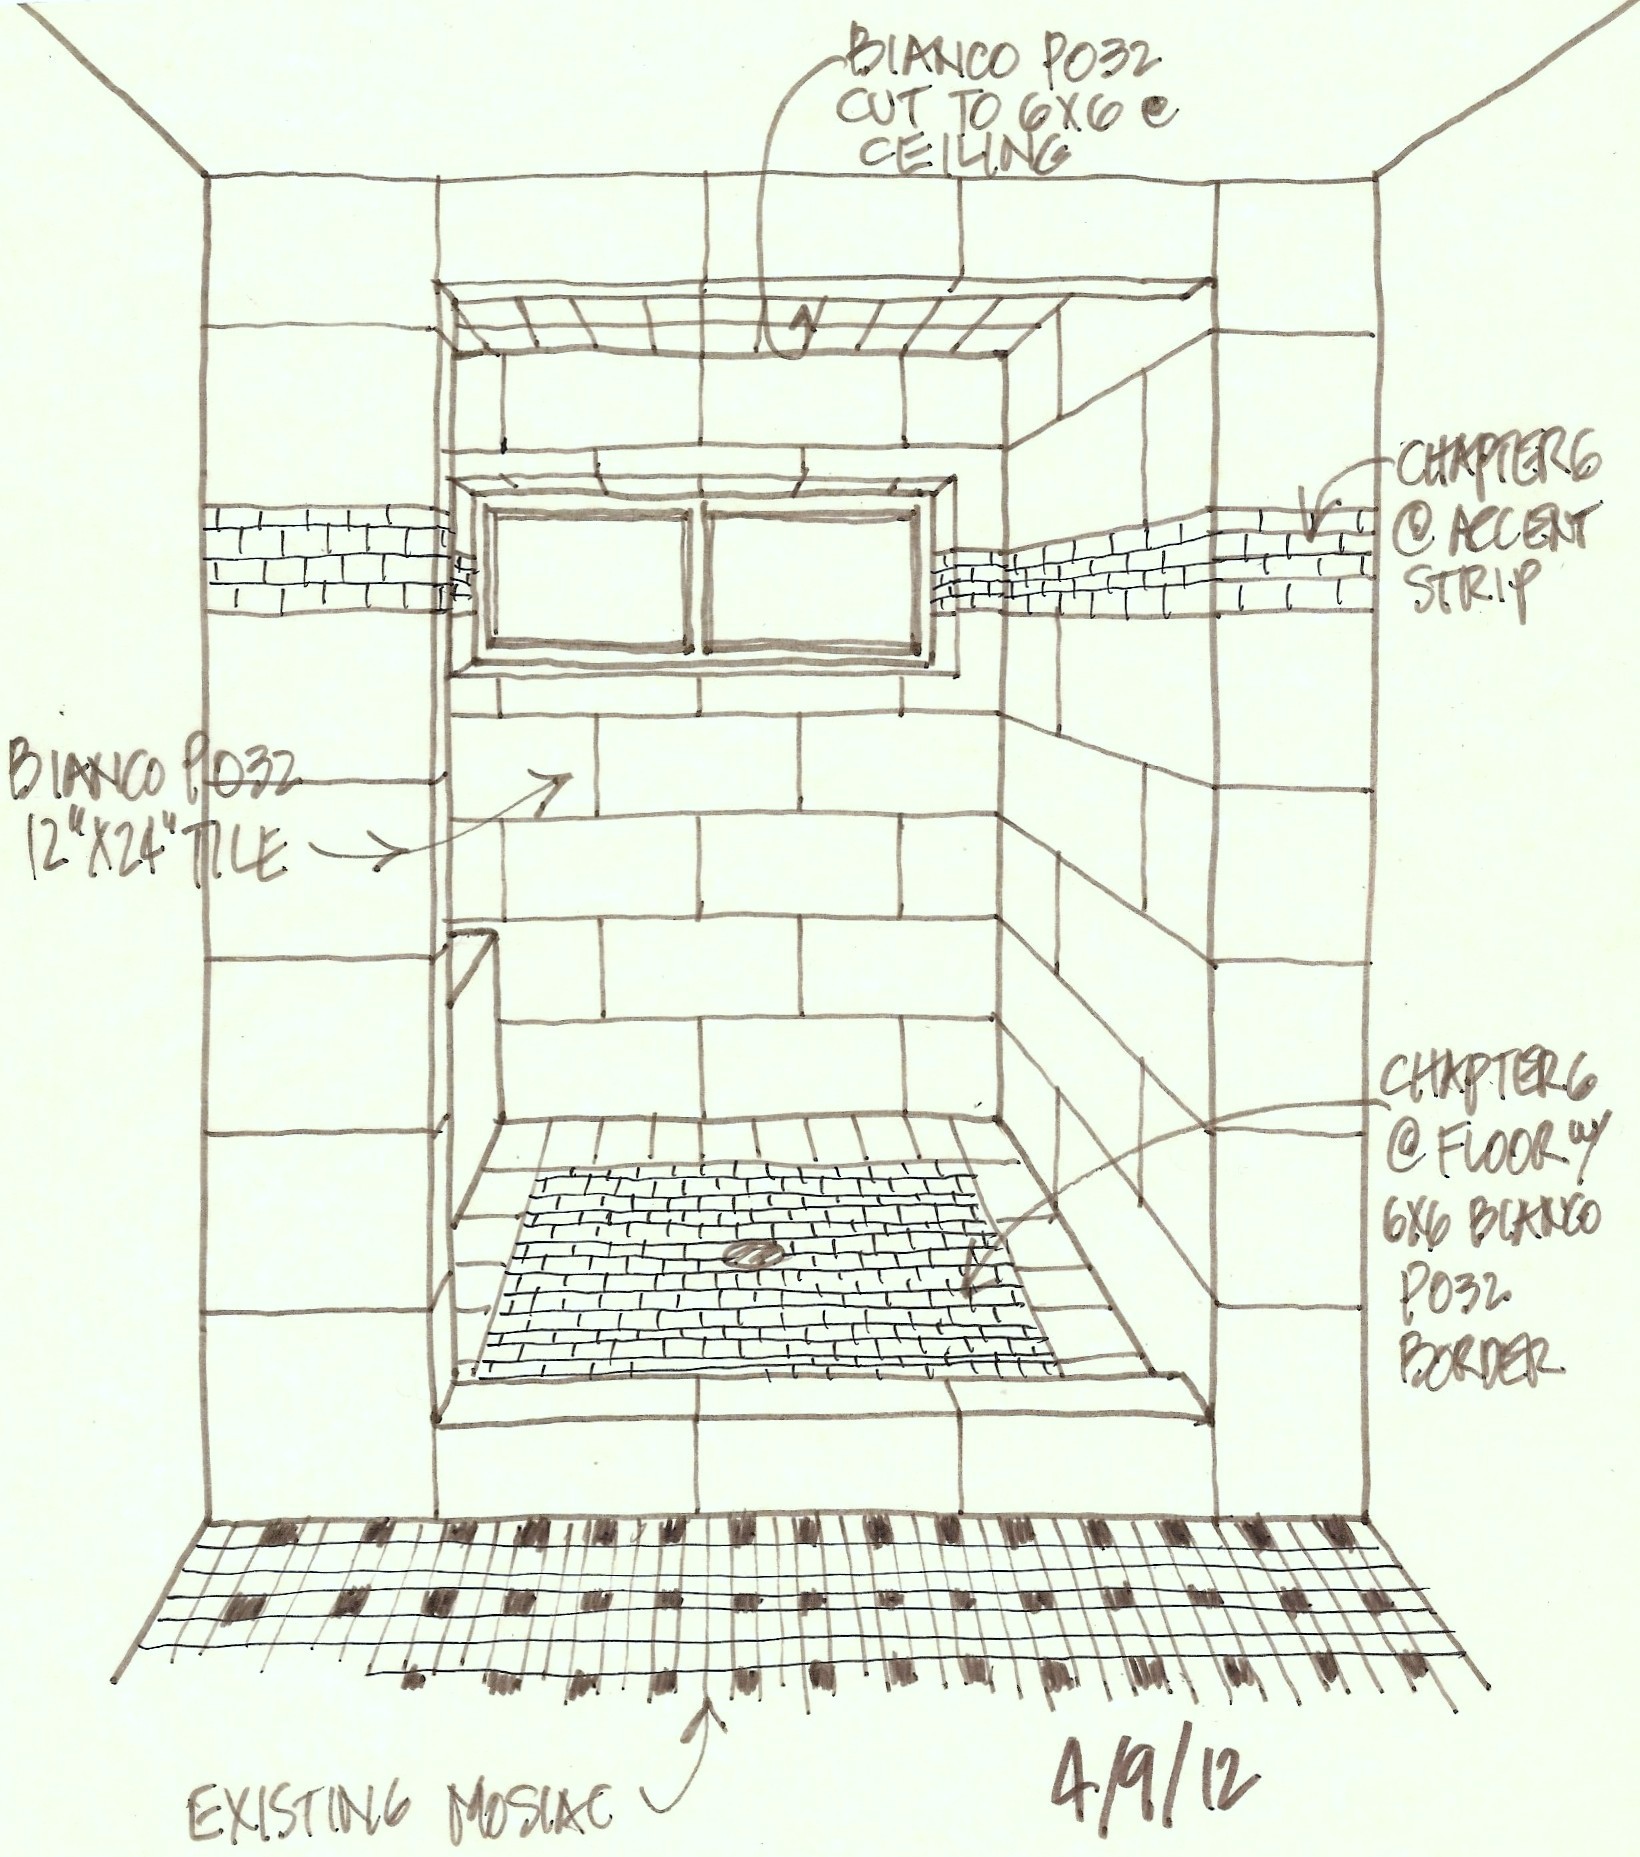 BIANCO PO32
CUT TO 6X6 @
CEILING
CHAPTER 6
@ ACCENT
STRIP
BIANCO PO32
12"X24" TILE
CHAPTER 6
@ FLOOR W/
6X6 BIANCO
PO32
BORDER
EXISTING MOSIAC
4/9/12